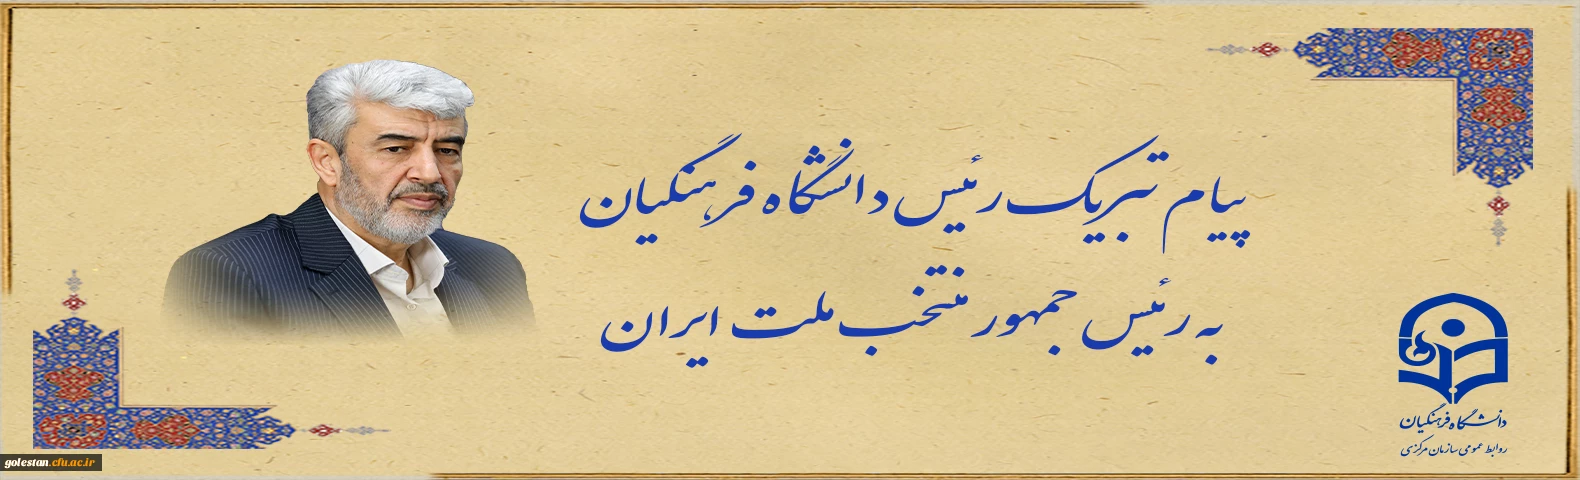 پیام تبریک رئیس دانشگاه فرهنگیان
به رئیس جمهور منتخب ملت ایران
دانشگاه فرهنگیان
روابط عمومی سازمان مرکزی
golestan.cfu.ac.ir